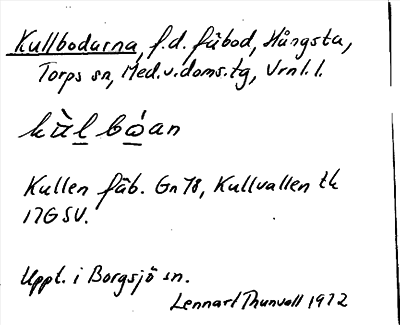 Kullbodarna, f.d. fäbod, Hångsta,
Torps sn, Med.v.doms.tg, Vrnl.l.
kùl bóan
Kullen fäb. Gn 78, Kullvallen tk
17G SV.
Uppt. i Borgsjö sn.
Lennart Thunvoll 1972